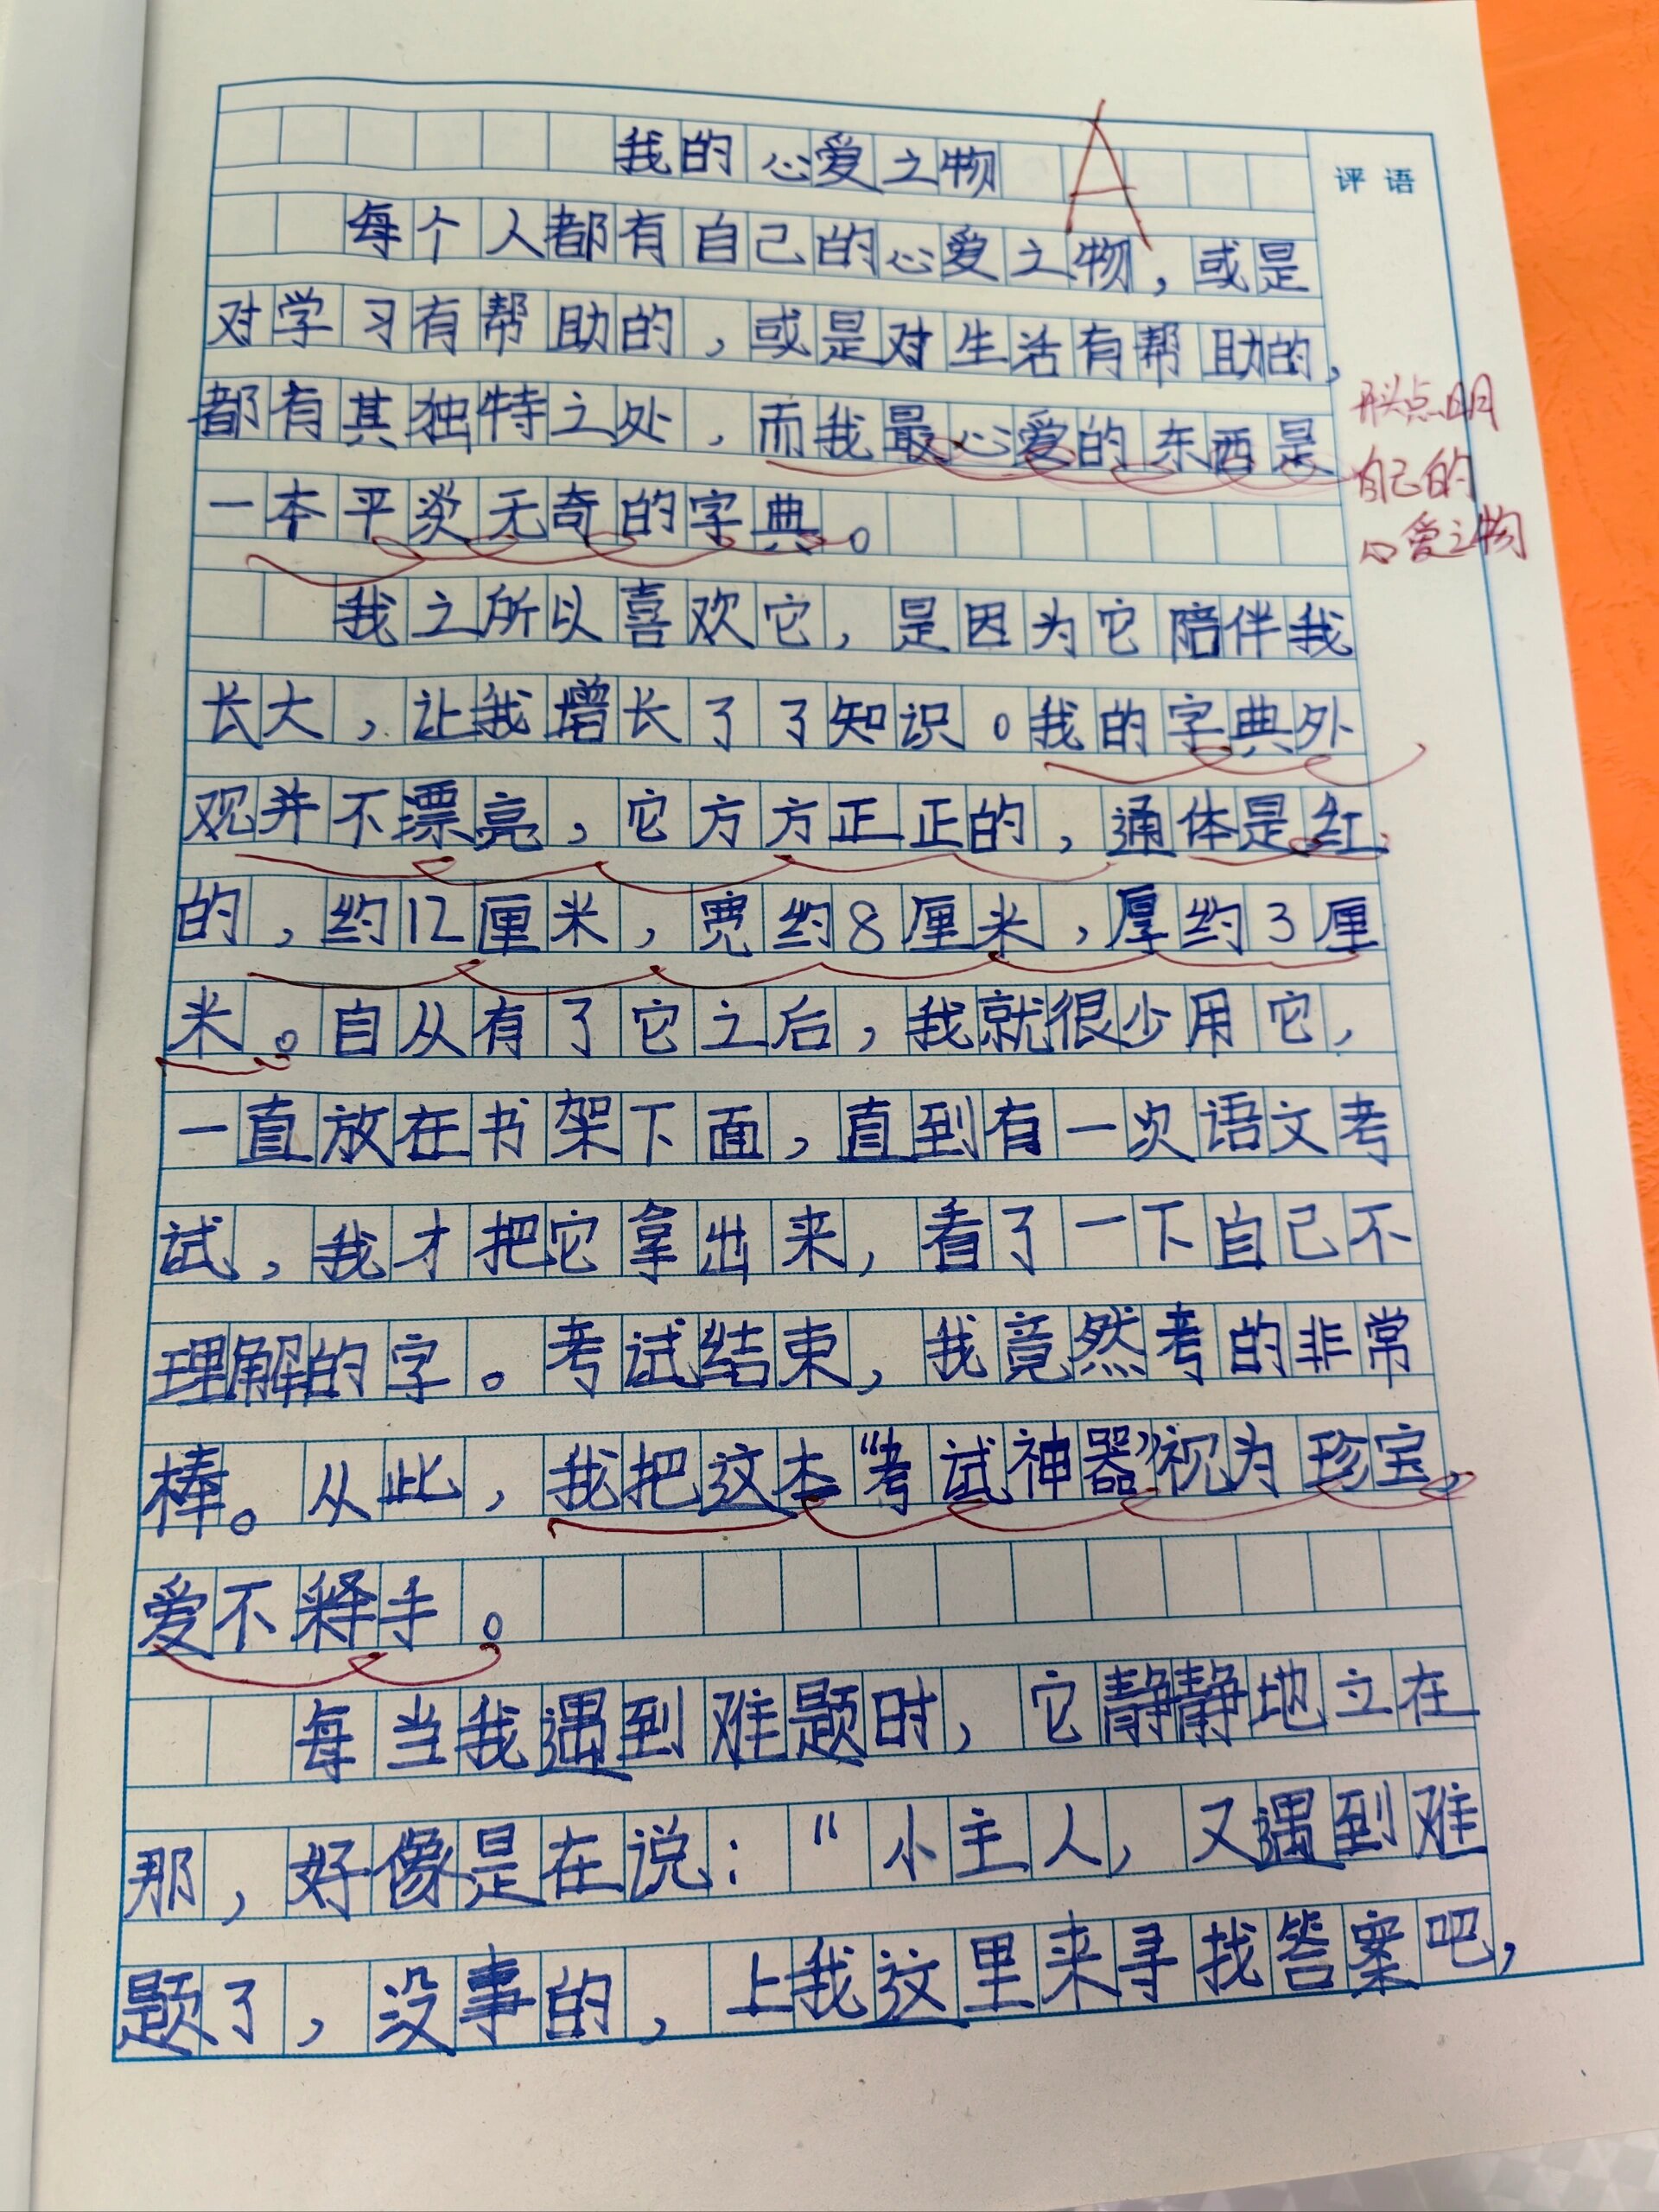 我的心爱之物 A
评语
每个人都有自己的心爱之物，或是
对学习有帮助的，或是对生活有帮助的，
都有其独特之处，而我最心爱的东西是
开头点明
自己的
心爱之物
一本平淡无奇的字典。
我之所以喜欢它，是因为它陪伴我
长大，让我增长了了知识。我的字典外
观并不漂亮，它方方正正的，通体是红
的，约12厘米，宽约8厘米，厚约3厘
米。自从有了它之后，我就很少用它，
一直放在书架下面，直到有一次语文考
试，我才把它拿出来，看了一下自己不
理解的字。考试结束，我竟然考的非常
棒。从此，我把这本“考试神器”视为珍宝，
爱不释手。
每当我遇到难题时，它静静地立在
那，好像是在说：“小主人，又遇到难
题了，没事的，上我这里来寻找答案吧，